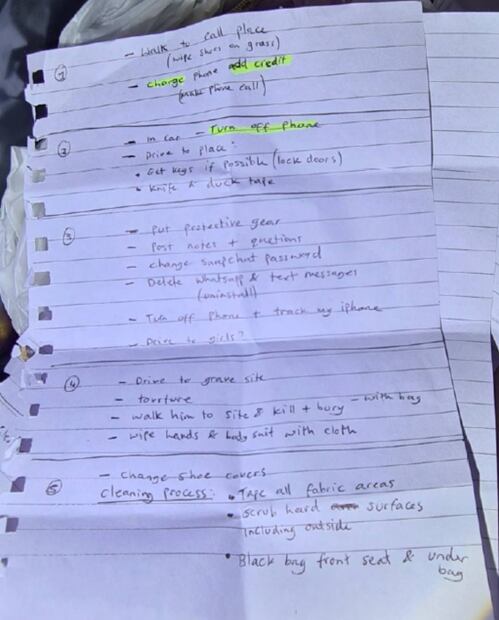 ① - Walk to call place
(wipe shoes on grass)
- Charge phone add credit
(make phone call)
② - In car - Turn off phone
- Drive to place:
• Get keys if possible (lock doors)
• Knife & duck tape
③ - Put protective gear
- Post notes + quetions
- Change snapchat password
- Delete whatsapp & text messages
(uninstall)
- Turn off phone + track my iphone
- Drive to girls?
④ - Drive to grave site
- torture
- walk him to site & kill + bury - with bag
- wipe hands & body suit with cloth
- Change shoe covers
⑤ Cleaning process: • Tape all fabric areas
• Scrub hard surfaces
including outside
• Black bag front seat & under
bag